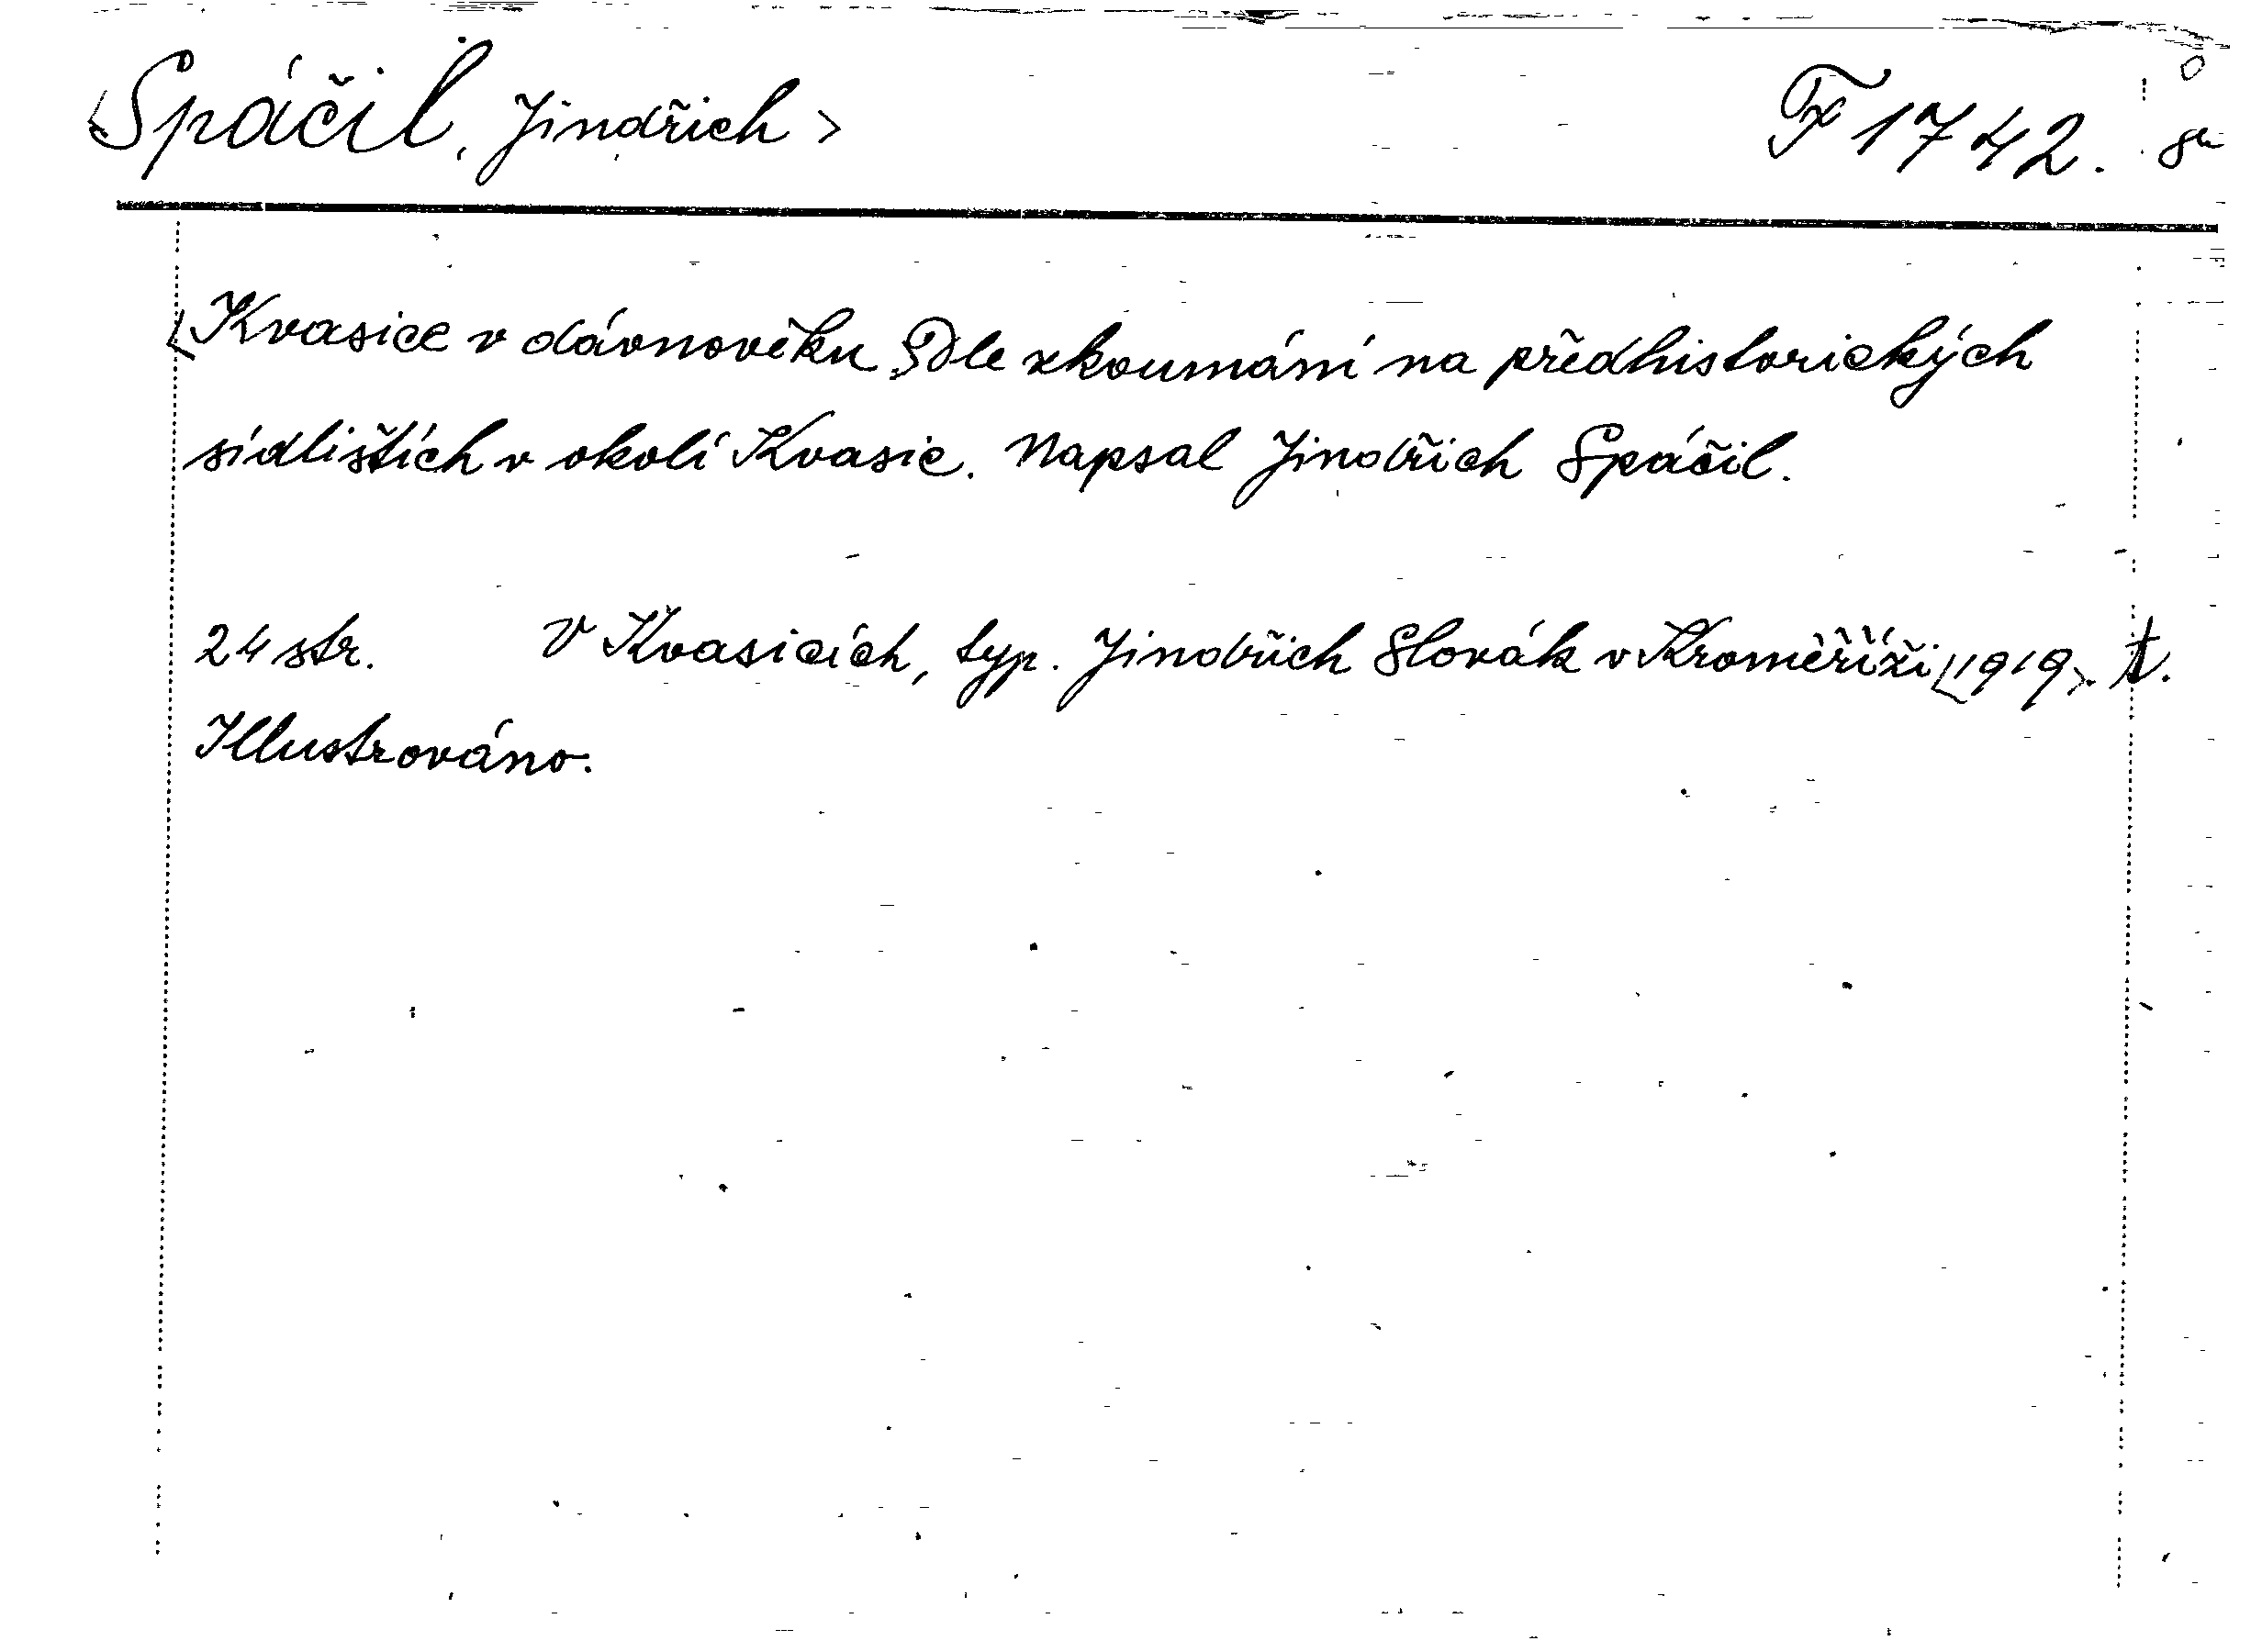 <Spáčil, Jindřich> F 1742.
<Kvasice v dávnověku> Dle zkoumání na předhistorických
sídlištích v okolí Kvasic. Napsal Jindřich Spáčil.
24 str. V Kvasicích, typ. Jindřich Slovák v Kroměříži <1919> t.
Illustrováno.